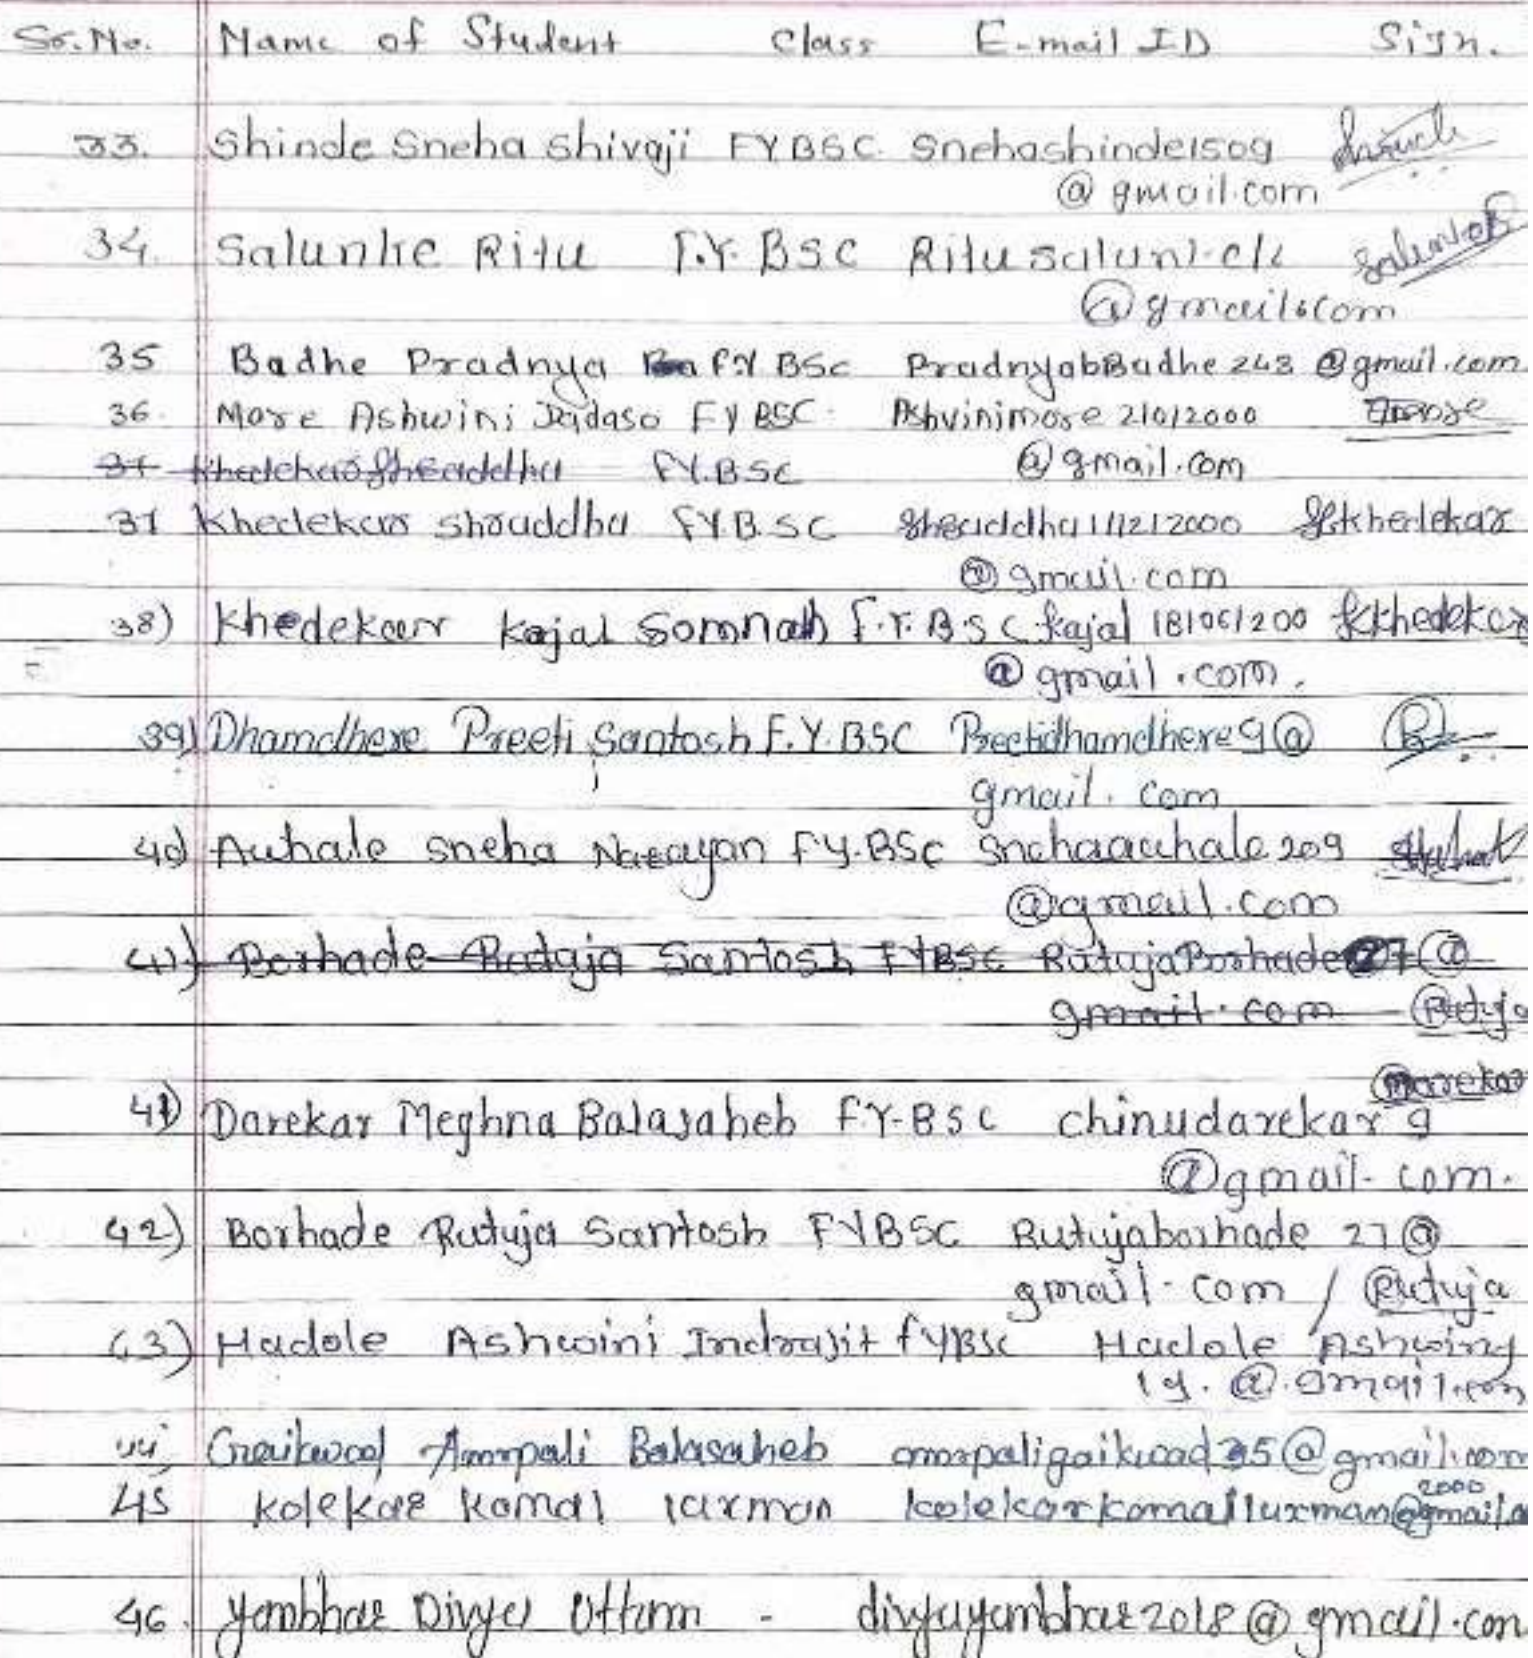 Sr. No. Name of Student Class E-mail ID Sign.
33. Shinde Sneha Shivaji FYBSC. Snehashinde1509
@ gmail.com
34. Salunke Ritu F.Y. BSC Ritusalunkek
@gmail.com
35 Badhe Pradnya F.Y BSc PradnyabBadhe 243 @gmail.com
36. More Ashwini Dadaso FYBSC. Ashvinimore 21012000
37 Khedekar Shraddha FY.BSC @gmail.com
37 Khedekar Shraddha FY.B.SC Shraddha11122000 Skhedekar
@gmail.com
38) Khedekar Kajal Somnath F.Y.BSC kajal 18/06/200 Kkhedekar
@ gmail.com.
39) Dhamdhere Preeti Santosh F.Y.BSC Preetidhamdhere9@
gmail. com
40) Auhale Sneha Narayan FY.BSC Snehaauhale209
@gmail.com
41) Borhade Rutuja Santosh FYBSC RutujaBorhade27@
gmail.com Rutuja
Marekar
41) Darekar Meghna Balasaheb F.Y-BSC chinudarekar 9
@gmail.com.
42) Borhade Rutuja Santosh FYBSC Rutujaborhade 27@
gmail.com / Rutuja
43) Hadole Ashwini Indrajit FYBSC Hadole Ashwiny
19.@.gmail.com
44) Gaikwad Amrpali Balasaheb amrpaligaikwad35@gmail.com
2000
45 Kolekar Komal laxman kolekarkomalluxman@gmail.c
46. Yambhar Divya Uttam - divyayambhar2018@gmail.com